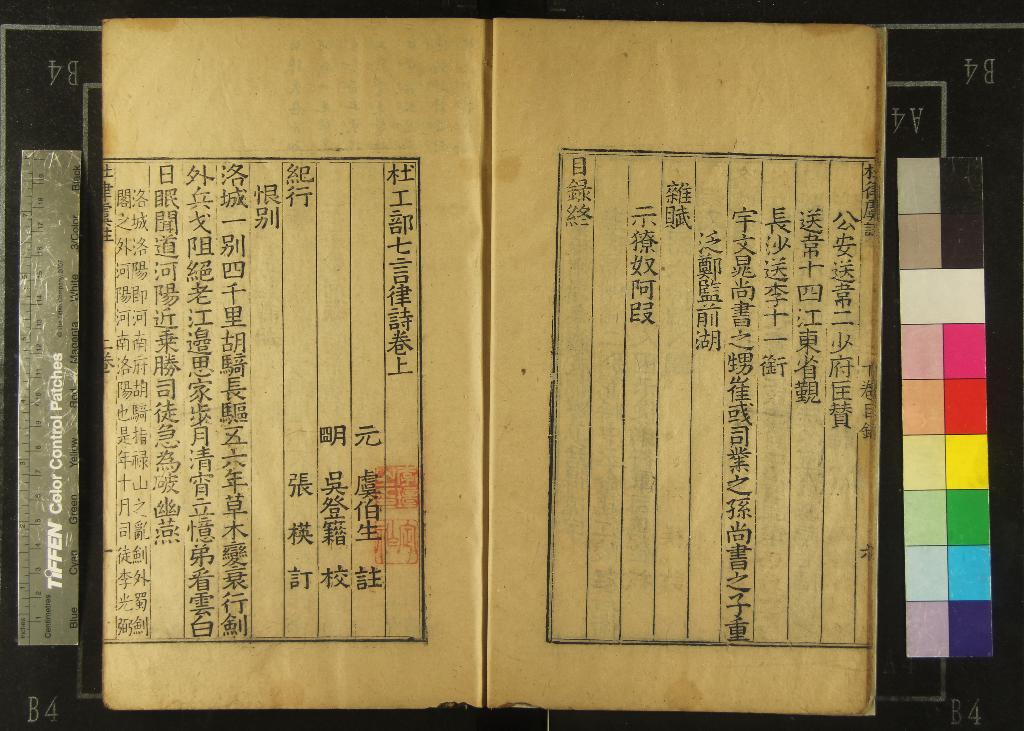 公安送韋二少府匡贊
送韋十四江東省覲
長沙送李十一銜
宇文晁尚書之甥崔彧司業之孫尚書之子重
泛鄭監前湖
雜賦
示獠奴阿段
目錄終
杜工部七言律詩卷上
元 虞伯生 註
明 吳登籍 校
張 楧 訂
紀行
恨別
洛城一別四千里胡騎長驅五六年草木變衰行劍
外兵戈阻絕老江邊思家步月清宵立憶弟看雲白
日眠聞道河陽近乗勝司徒急為破幽燕
洛城洛陽即河南府胡騎指祿山之亂劍外蜀劍
閣之外河陽河南洛陽也是年十月司徒李光弼
杜律虞註
上卷
一
B4
B4
A4
B4
B4
TIFFEN Color Control Patches
Centimetres
Blue
Cyan
Green
Yellow
Red
Magenta
White
3/Color
Black